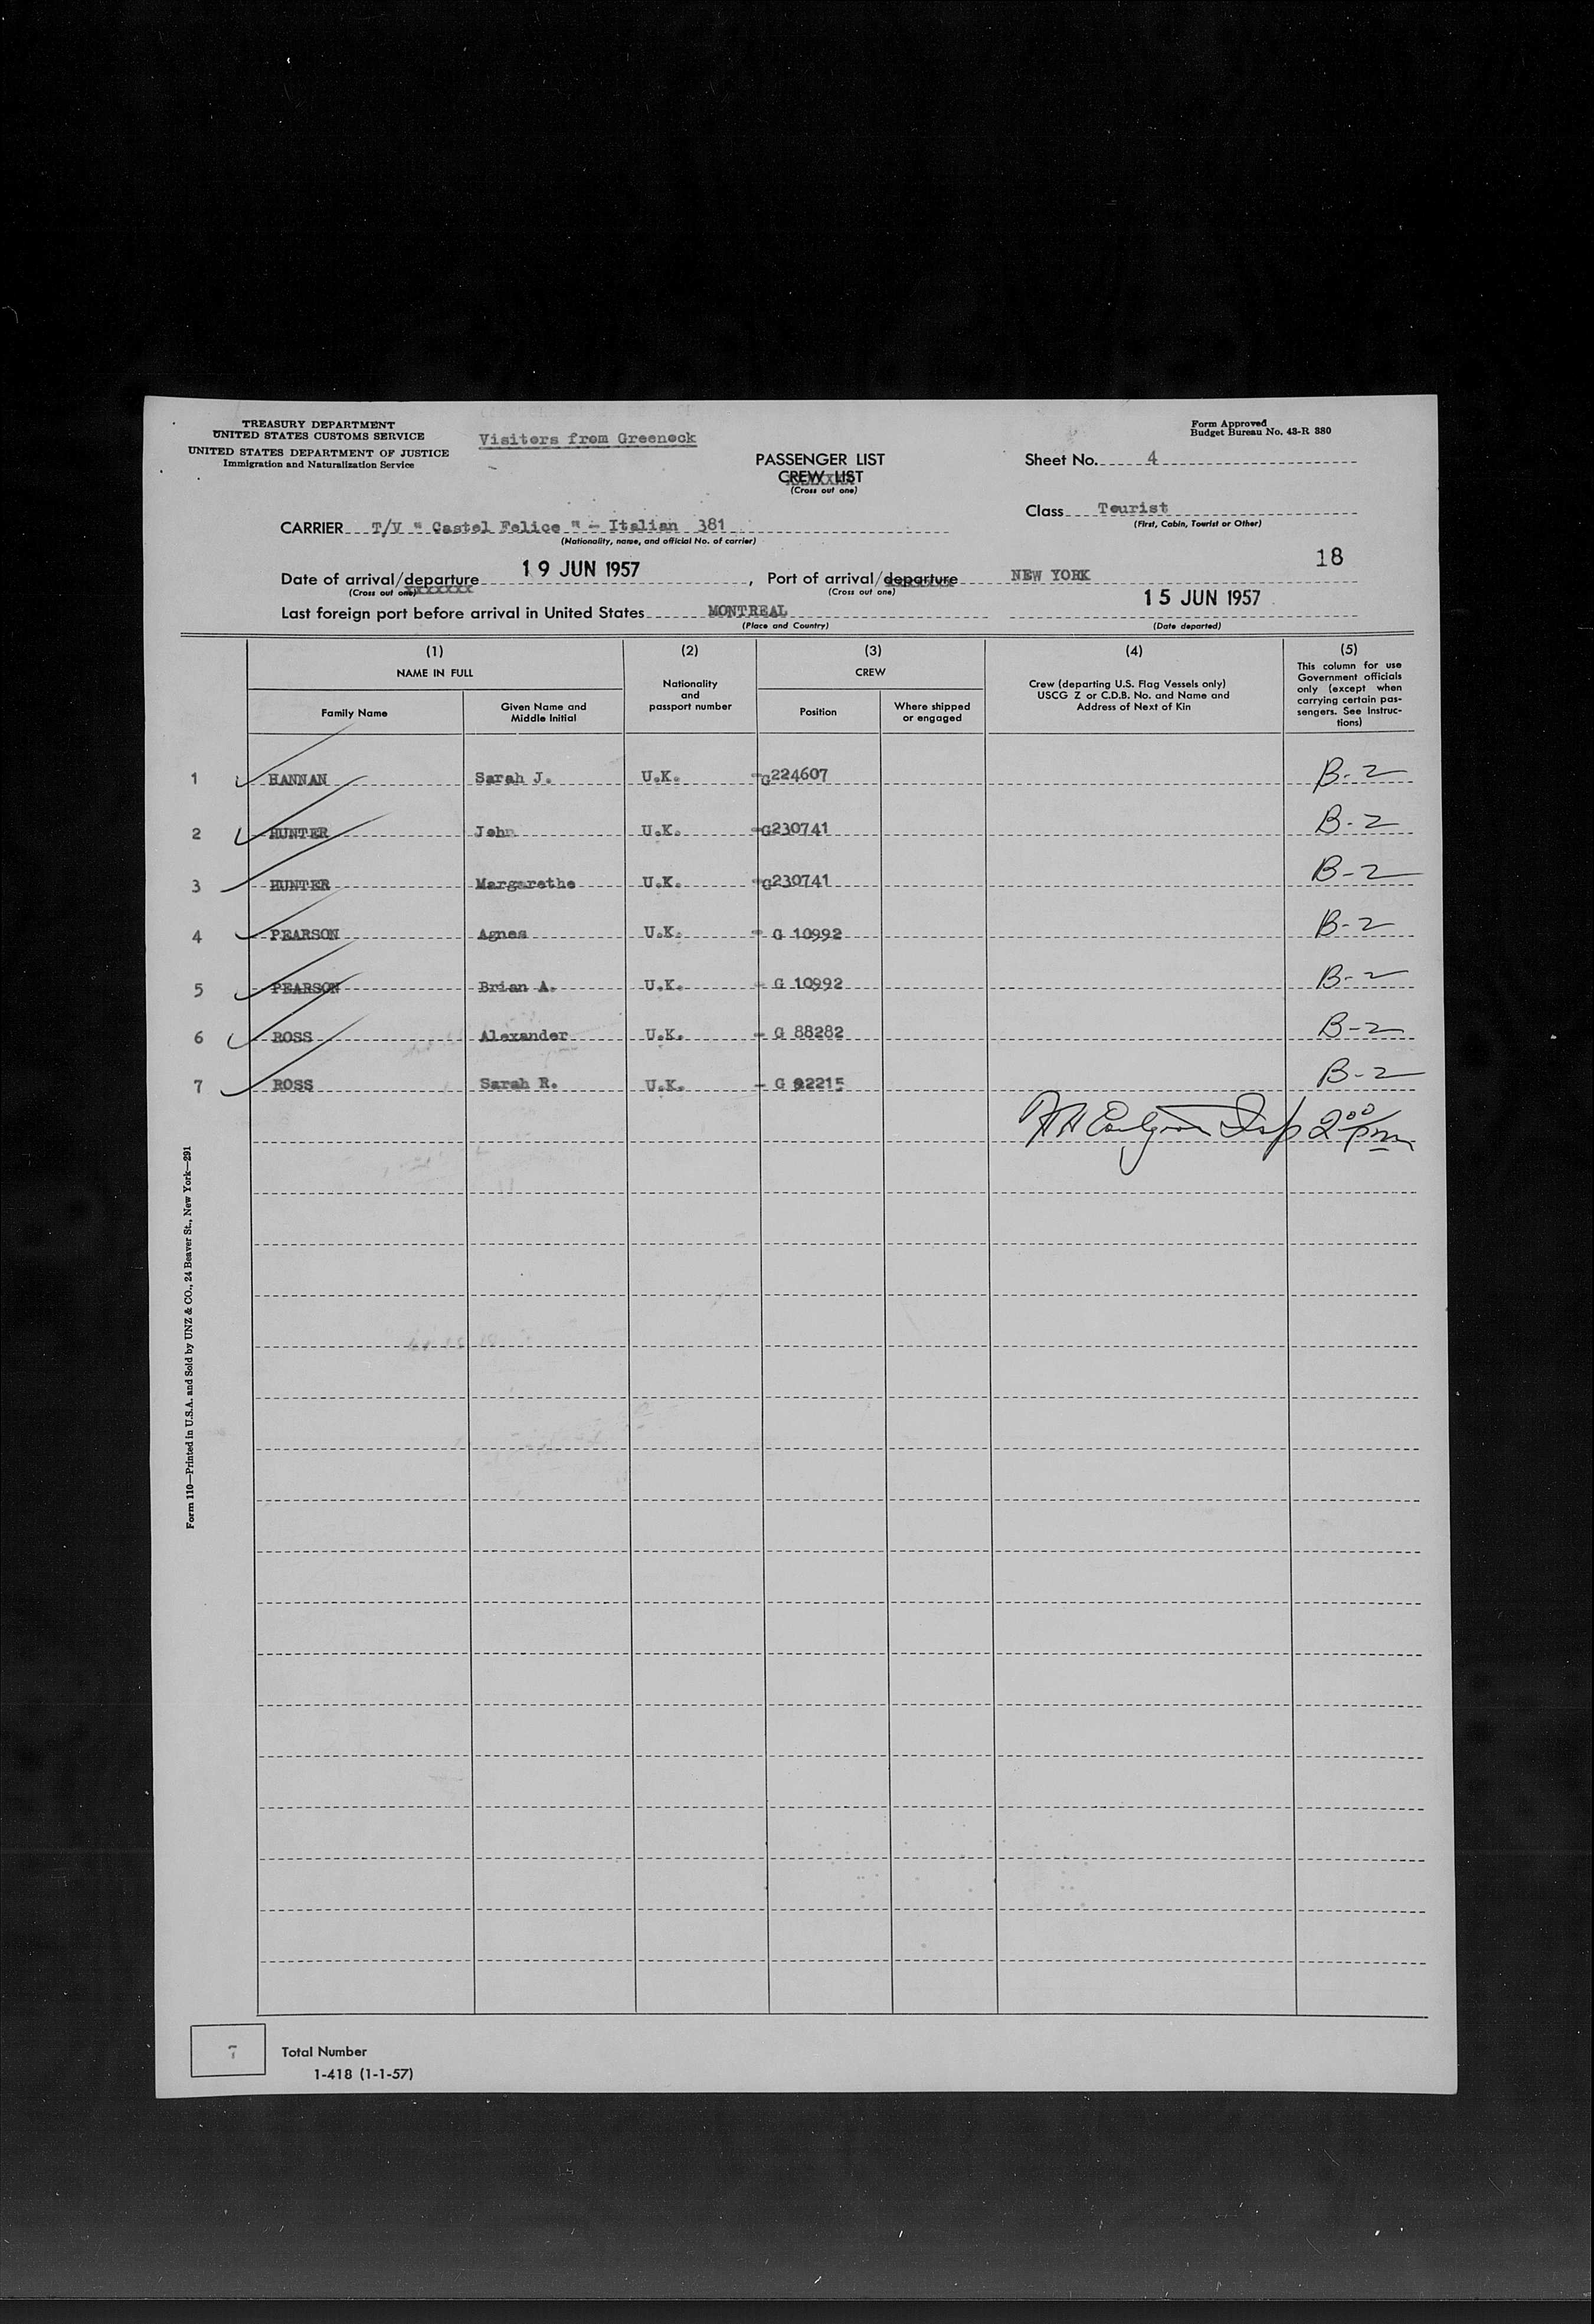 TREASURY DEPARTMENT
UNITED STATES CUSTOMS SERVICE
UNITED STATES DEPARTMENT OF JUSTICE
Immigration and Naturalization Service
Visitors from Greenock
Form Approved
Budget Bureau No. 43-R 380
PASSENGER LIST
CREW LIST
(Cross out one)
Sheet No. 4
Class Tourist
(First, Cabin, Tourist or Other)
CARRIER T/V " Castel Felice " - Italian 381
(Nationality, name, and official No. of carrier)
18
Date of arrival/departure 19 JUN 1957, Port of arrival/departure NEW YORK
(Cross out one) (Cross out one)
Last foreign port before arrival in United States MONTREAL 15 JUN 1957
(Place and Country) (Date departed)
(1) (2) (3) (4) (5)
NAME IN FULL
Family Name
Given Name and Middle Initial
Nationality and passport number
CREW
Position
Where shipped or engaged
Crew (departing U.S. Flag Vessels only)
USCG Z or C.D.B. No. and Name and
Address of Next of Kin
This column for use
Government officials
only (except when
carrying certain pas-
sengers. See Instruc-
tions)
1 HANNAN Sarah J. U.K. -G224607 B-2
2 HUNTER John U.K. -G230741 B-2
3 HUNTER Margarethe U.K. -G230741 B-2
4 PEARSON Agnes U.K. - G 10992 B-2
5 PEARSON Brian A. U.K. - G 10992 B-2
6 ROSS Alexander U.K. - G 88282 B-2
7 ROSS Sarah R. U.K. - G 92215 B-2
2 00 pm
Form 110—Printed in U.S.A. and Sold by UNZ & CO., 24 Beaver St., New York—291
7 Total Number
1-418 (1-1-57)